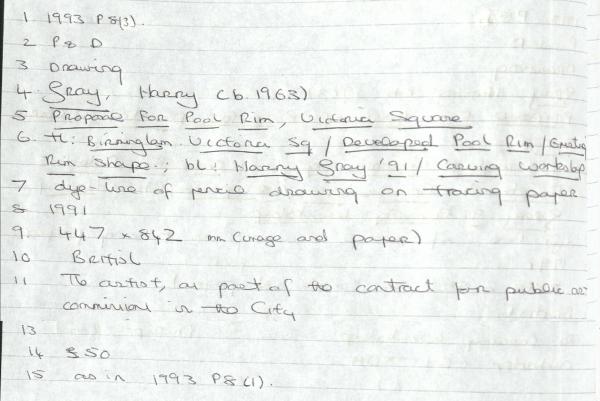 1 1993 P8(3).
2 P & D
3 Drawing
4 Gray, Harry (b. 1963)
5 Proposal for Pool Rim, Victoria Square
6. tl: Birmingham. Victoria Sq / Developed Pool Rim /
Rim Shape.; bl: Harry Gray '91 / Carving Workshop
7 dye-line of pencil drawing on tracing paper
8 1991
9. 447 x 842 mm (image and paper)
10 British
11 The artist, as part of the contract for public art
commissions in the City
13
14 £50
15 as in 1993 P8(1).